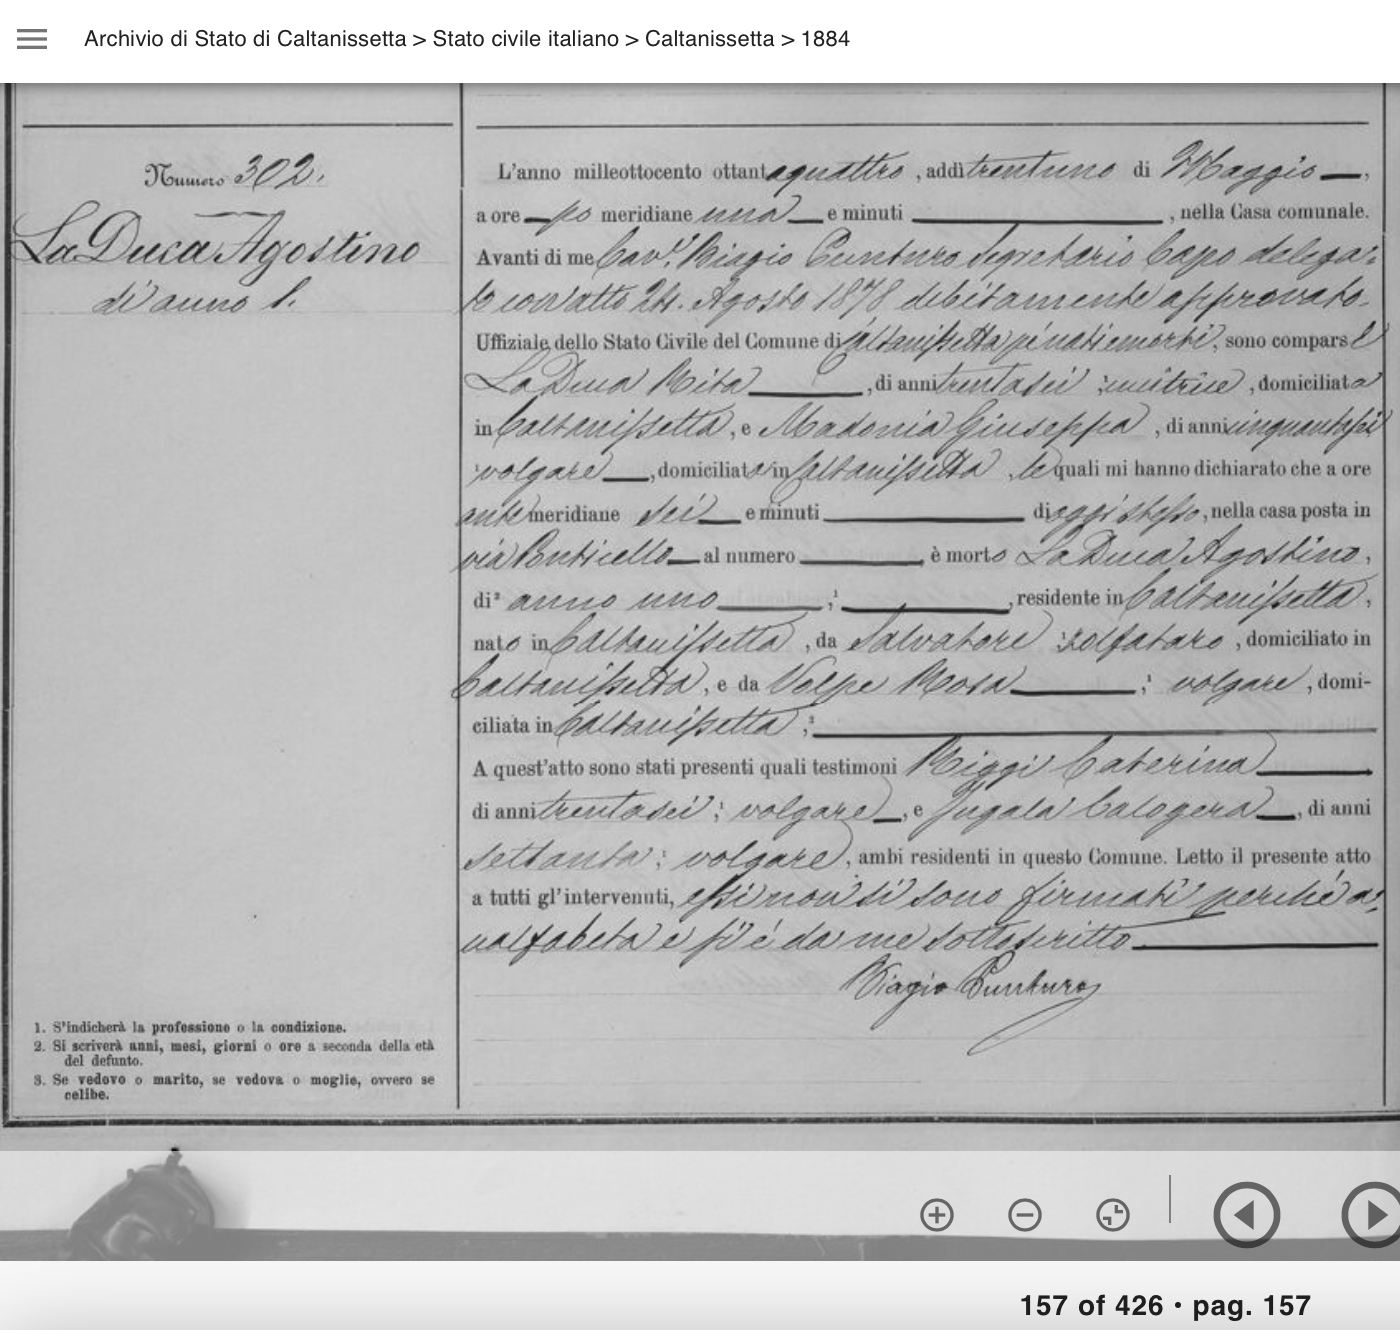 Archivio di Stato di Caltanissetta > Stato civile italiano > Caltanissetta > 1884
Numero 302.
La Duca Agostino
di anno 1.
1. S'indicherà la professione o la condizione.
2. Si scriverà anni, mesi, giorni o ore a seconda della età
del defunto.
3. Se vedovo o marito, se vedova o moglie, ovvero se
celibe.
L'anno milleottocento ottantaquattro, addì trentuno di Maggio,
a ore po meridiane una e minuti , nella Casa comunale.
Avanti di me Cav. Biagio Punturo Segretario Capo delega-
to con atto 24. Agosto 1878 debitamente approvato.
Uffiziale dello Stato Civile del Comune di Caltanissetta pei nati e morti, sono comparse
La Duca Rita , di anni trentasei ; , domiciliata
in Caltanissetta, e Madonia Giuseppa , di anni cinquantasei
volgare , domiciliata in Caltanissetta , le quali mi hanno dichiarato che a ore
ante meridiane sei e minuti di oggi stesso, nella casa posta in
via Ponticello al numero , è morto La Duca Agostino,
di² anno uno ;¹ , residente in Caltanissetta,
nato in Caltanissetta , da Salvatore ;¹ zolfataro , domiciliato in
Caltanissetta, e da Volpe Rosa ;¹ volgare , domi-
ciliata in Caltanissetta ;³
A quest'atto sono stati presenti quali testimoni Riggi Caterina
di anni trentasei ;¹ volgare , e Calogera , di anni
settanta ; volgare , ambi residenti in questo Comune. Letto il presente atto
a tutti gl'intervenuti, essi non si sono firmati perchè a-
nalfabeta e si è da me sottoscritto
Biagio Punturo
157 of 426 • pag. 157